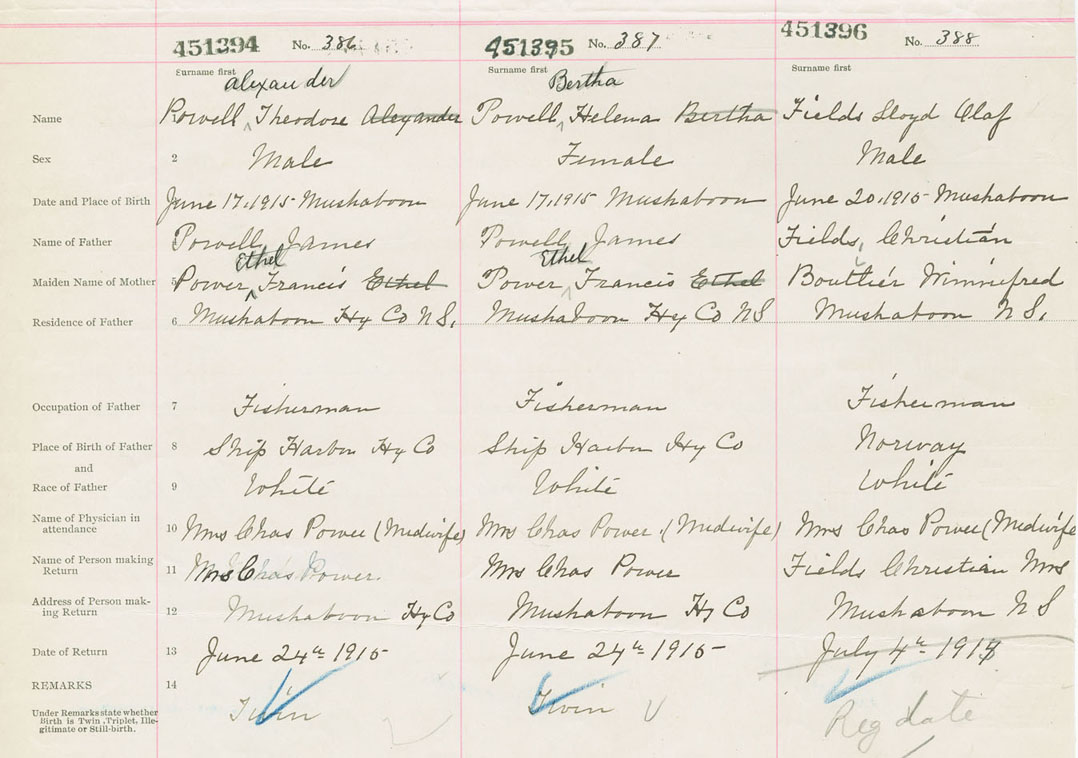 451394 No. 386 451395 No. 387 451396 No. 388
Surname first Surname first Surname first
Alexander Bertha
Name Powell, Theodore Alexander Powell, Helena Bertha Fields Lloyd Olaf
Sex 2 Male Female Male
Date and Place of Birth June 17, 1915 Mushaboon June 17, 1915 Mushaboon June 20, 1915 Mushaboon
Name of Father Powell, James Powell, James Fields, Christian
Ethel Ethel
Maiden Name of Mother 5 Power, Francis Ethel Power, Francis Ethel Boutlier Winnifred
Residence of Father 6 Mushaboon Hx Co N S, Mushaboon Hx Co N S Mushaboon N S,
Occupation of Father 7 Fisherman Fisherman Fisherman
Place of Birth of Father 8 Ship Harbor Hx Co Ship Harbor Hx Co Norway
and
Race of Father 9 White White White
Name of Physician in
attendance 10 Mrs Chas Power (Midwife) Mrs Chas Power, (Midwife) Mrs Chas Power (Midwife
Name of Person making
Return 11 Mrs Chas Power. Mrs Chas Power Fields Christian Mrs
Address of Person mak-
ing Return 12 Mushaboon Hx Co Mushaboon Hx Co Mushaboon N S
Date of Return 13 June 24th 1915 June 24th 1915 July 4th 191
REMARKS 14
Under Remarks state whether
Birth is Twin, Triplet, Ille-
gitimate or Still-birth.
Twin Twin Reg date